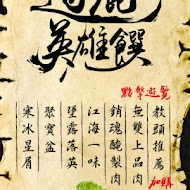 英雄饌
點擊遊覽
教頭推薦
無雙上品肉
銷魂醃製肉
江海一味
墜露落英
聚寶盆
寒冰星屑
加購